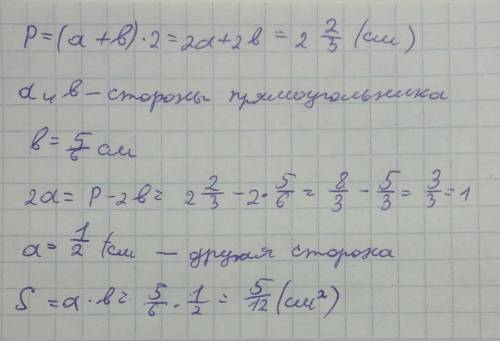 P=(a+в)·2=2a+2в=2 2/3 (см)
a и в – стороны прямоугольника
в=5/6 см
2a= P-2в= 2 2/3 -2·5/6= 8/3 - 5/3= 3/3=1
a=1/2 см — другая сторона
S=a·в= 5/6·1/2= 5/12 (см²)